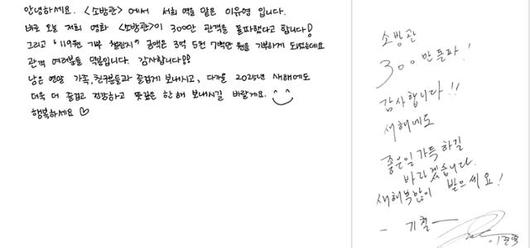 안녕하세요. <소방관> 에서 서희 역을 맡은 이유영 입니다.
바로 오늘 저희 영화 <소방관>이 300만 관객을 돌파했다고 합니다!
그리고 "119원 기부 챌린지" 금액은 3억 5천 7백만 원을 기부하게 되었는데요
관객 여러분들 덕분입니다. 감사합니다!!
남은 연말 가족, 친구분들과 즐겁게 보내시고, 다가올 2025년 새해에도
더욱 더 즐겁고 건강하고 뜻깊은 한 해 보내시길 바랄게요. ^^
행복하세요 ♡
소방관
300만 돌파!
감사합니다!!
새해에도
좋은일 가득 하길
바라겠습니다.
새해복많이 받으세요!
- 기철 -